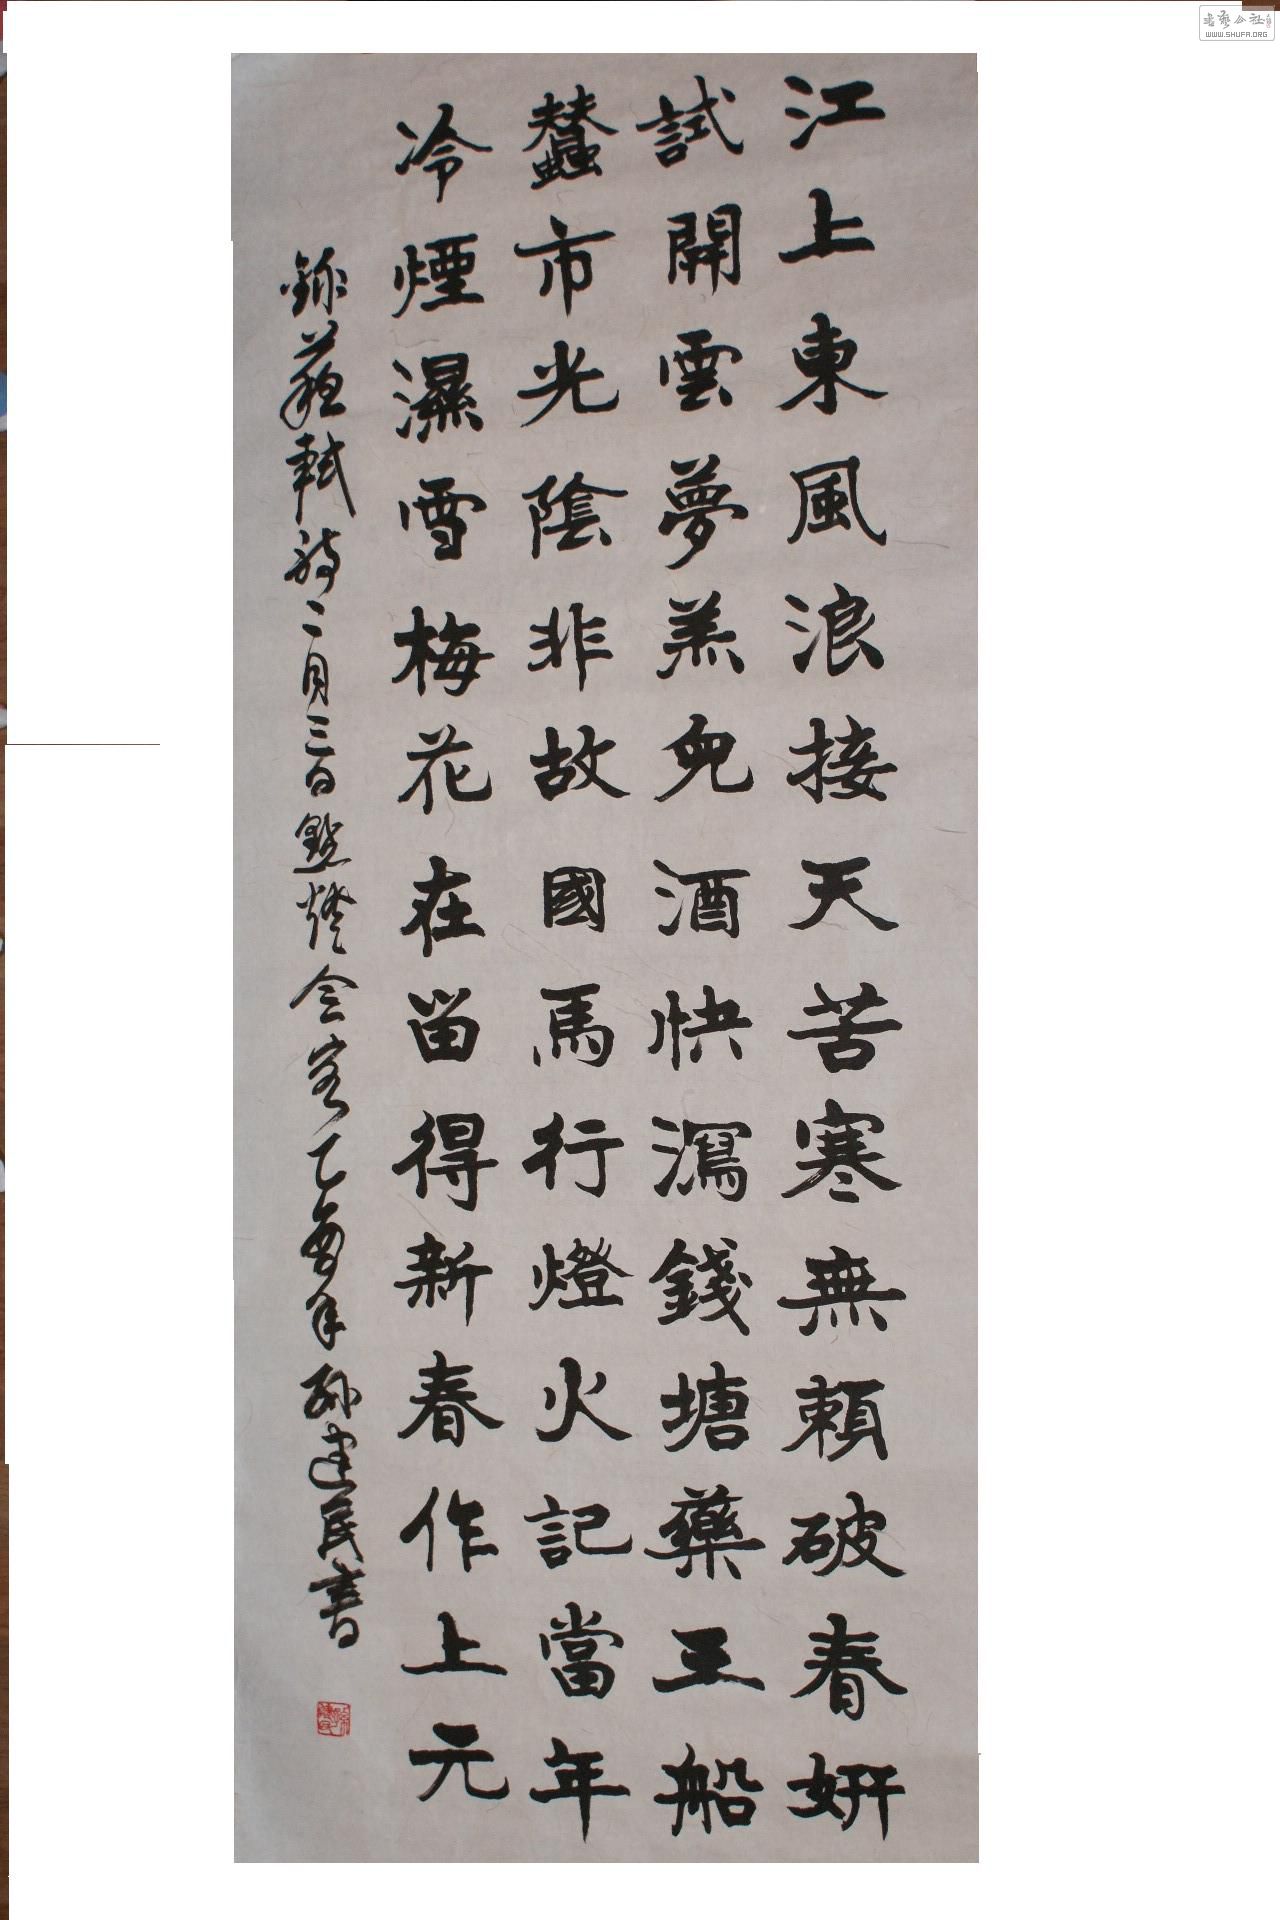 江上東風浪接天苦寒無賴破春妍
試開雲夢羔兒酒快瀉錢塘藥玉船
蠶市光陰非故國馬行燈火記當年
冷煙濕雪梅花在留得新春作上元
錄蘇軾詩二月三日點燈會客乙酉年孫建民書
书艺公社
WWW.SHUFA.ORG